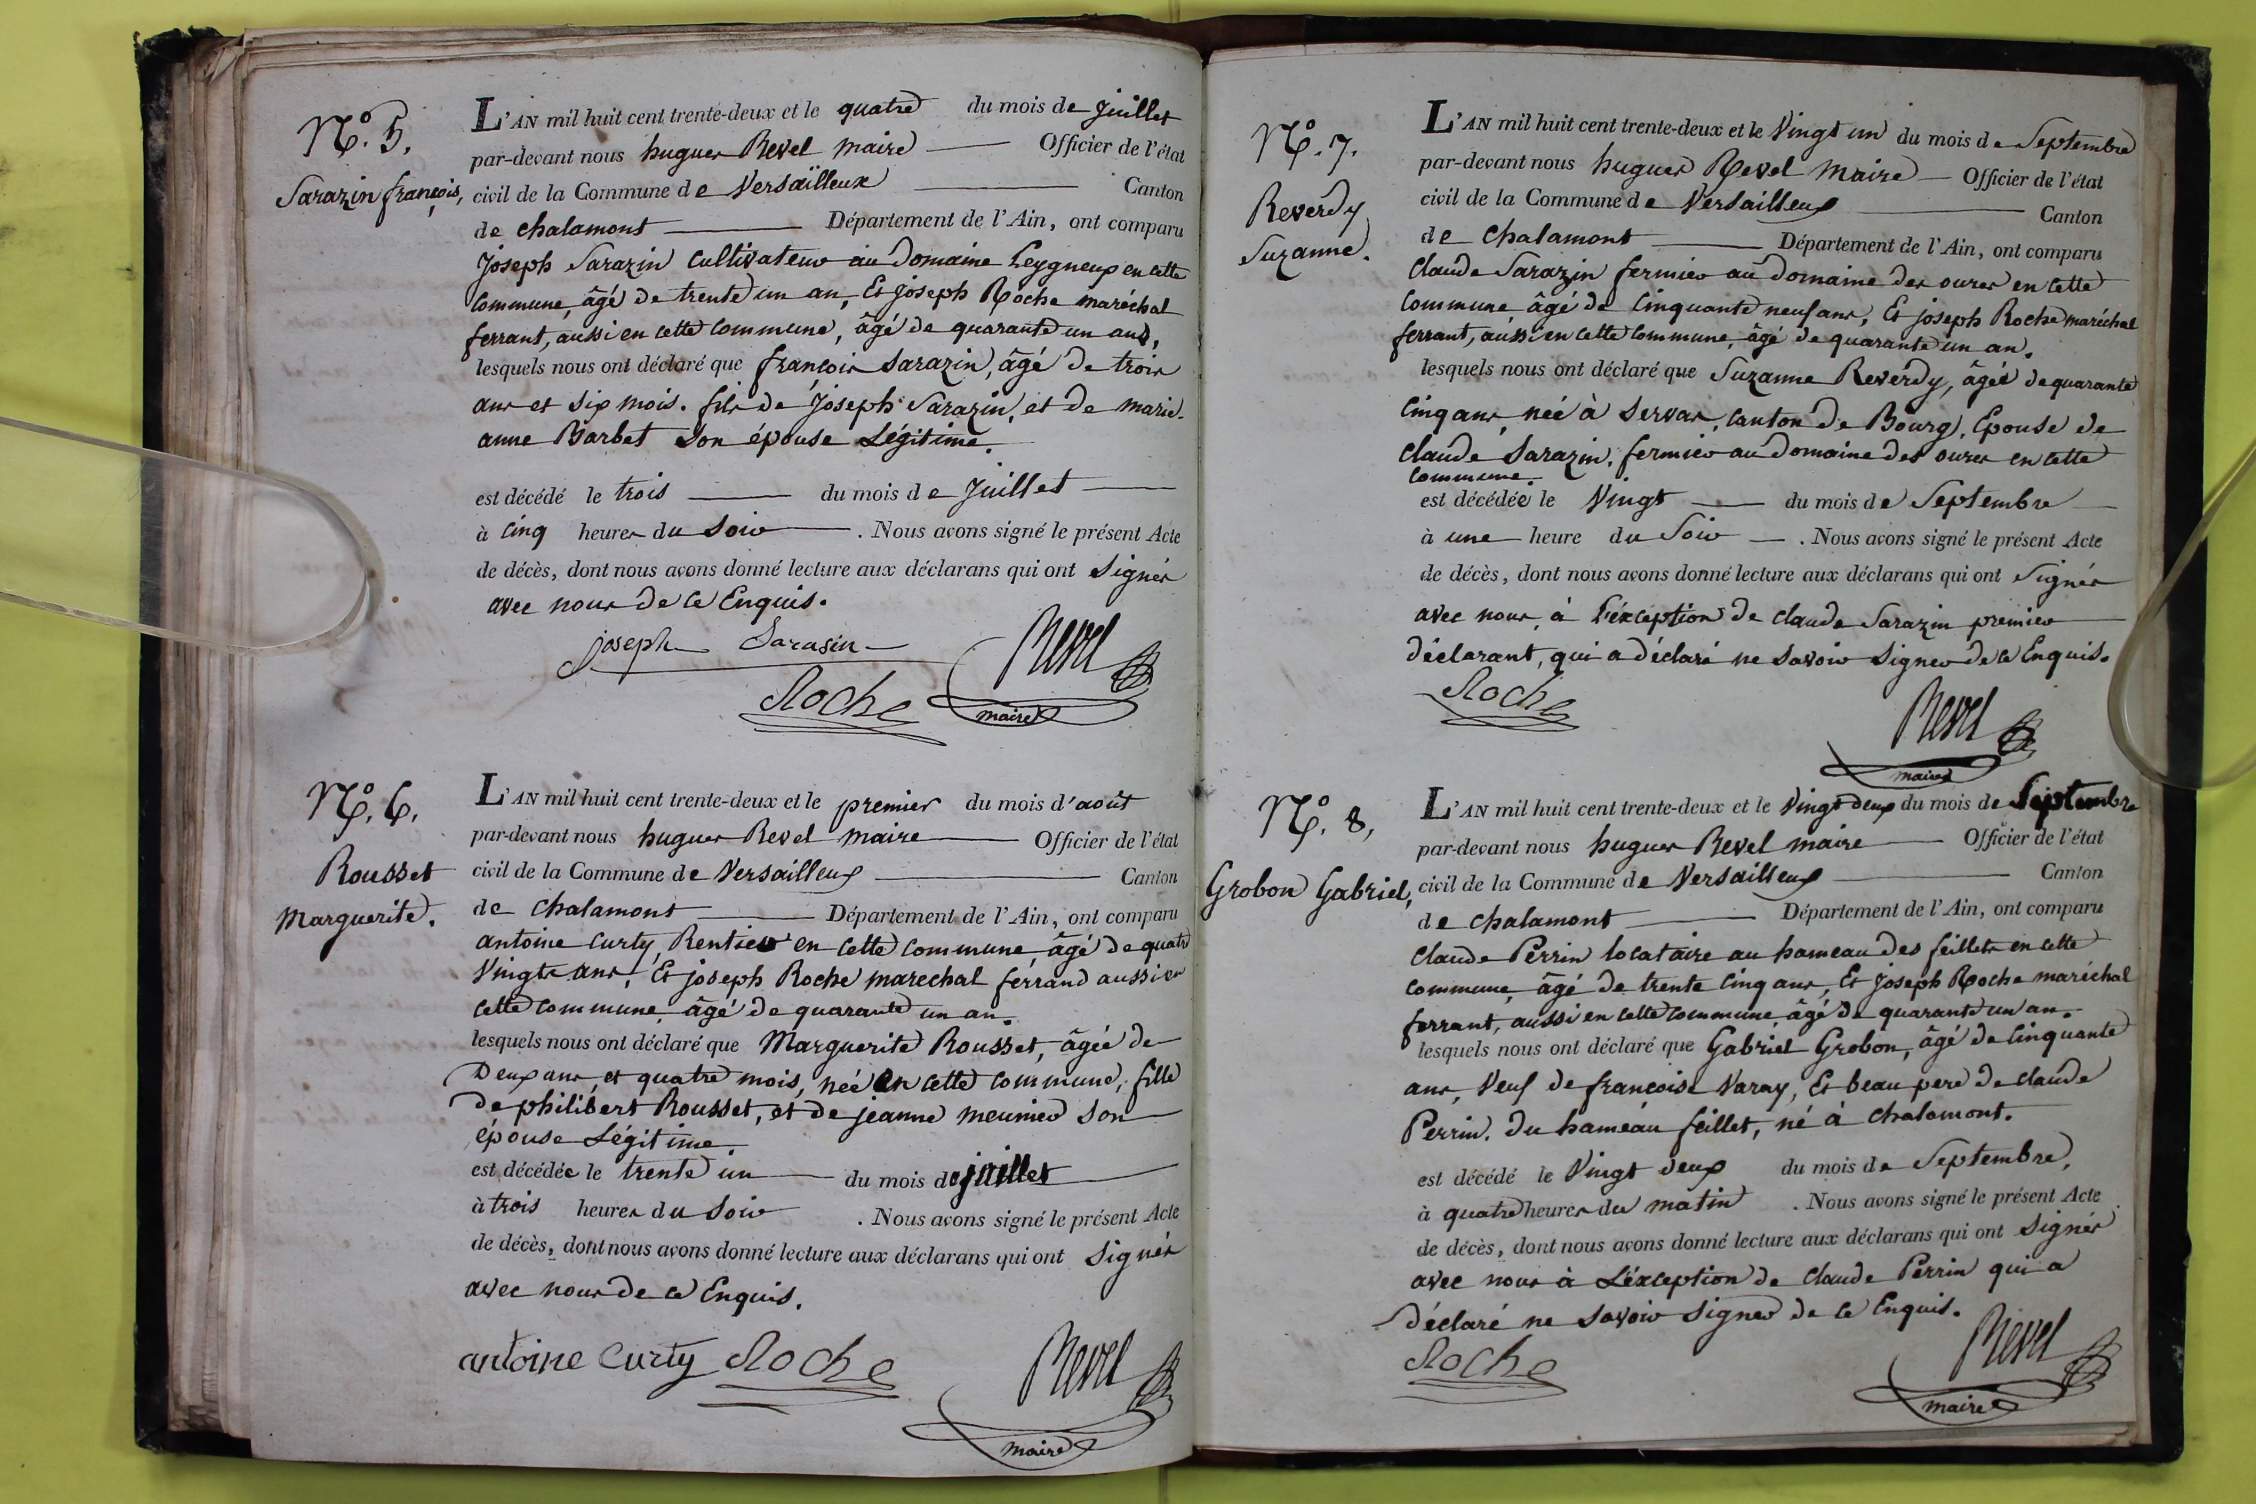 N.º 5.
Sarazin françois,
L'AN mil huit cent trente-deux et le quatre du mois de Juillet
par-devant nous hugues Revel maire Officier de l'état
civil de la Commune de Versailleux Canton
de chalamont Département de l'Ain, ont comparu
Joseph Sarazin cultivateur au Domaine Leygneux en cette
commune, âgé de trente un an, Et joseph Roche maréchal
ferrant, aussi en cette commune, âgé de quarante un ans,
lesquels nous ont déclaré que françois Sarazin, âgé de trois
ans et six mois. fils de Joseph Sarazin, et de marie-
anne Barbet Son épouse Légitime.
est décédé le trois du mois de Juillet
à cinq heures du Soir . Nous avons signé le présent Acte
de décès, dont nous avons donné lecture aux déclarans qui ont Signés
avec nous de ce Enquis.
joseph Sarasin
Revel
Roche
maire
N.º 6.
Rousset
Marguerite.
L'AN mil huit cent trente-deux et le premier du mois d'août
par-devant nous hugues Revel maire Officier de l'état
civil de la Commune de Versailleux Canton
de chalamont Département de l'Ain, ont comparu
antoine Curty, Rentier en cette commune, âgé de quatre
Vingts ans, Et joseph Roche marechal ferrand aussi en
cette commune, âgé de quarante un an.
lesquels nous ont déclaré que Marguerite Rousset, âgée de
Deux ans, et quatre mois, née en cette commune, fille
de philibert Rousset, et de jeanne meunier son
épouse Légitime.
est décédée le trente un du mois de juillet
à trois heures du Soir . Nous avons signé le présent Acte
de décès, dont nous avons donné lecture aux déclarans qui ont Signés
avec nous de ce Enquis.
antoine Curty Roche
Revel
maire
N.º 7.
Reverdy
Suzanne.
L'AN mil huit cent trente-deux et le Vingt un du mois de Septembre
par-devant nous hugues Revel Maire Officier de l'état
civil de la Commune de Versailleux Canton
de chalamont Département de l'Ain, ont comparu
Claude Sarazin fermier au Domaine des oures en cette
commune, âgé de cinquante neuf ans, Et joseph Roche maréchal
ferrant, aussi en cette commune, âgé de quarante un an.
lesquels nous ont déclaré que Suzanne Reverdy, âgée de quarante
cinq ans, née à Servas, canton de Bourg, Epouse de
claude Sarazin, fermier au Domaine des oures en cette
commune.
est décédée le Vingt du mois de Septembre
à une heure du Soir . Nous avons signé le présent Acte
de décès, dont nous avons donné lecture aux déclarans qui ont Signés
avec nous, à L'éxception de claude Sarazin premier
déclarant, qui a déclaré ne Savoir Signer de ce Enquis.
Roche
Revel
maire
N.º 8,
Grobon Gabriel,
L'AN mil huit cent trente-deux et le Vingt deux du mois de Septembre
par-devant nous hugues Revel maire Officier de l'état
civil de la Commune de Versailleux Canton
de chalamont Département de l'Ain, ont comparu
Claude Perrin locataire au hameau des feillets en cette
commune, âgé de trente cinq ans, Et Joseph Roche maréchal
ferrant, aussi en cette commune âgé de quarante un an.
lesquels nous ont déclaré que Gabriel Grobon, âgé de cinquante
ans, Veuf de françoise Varay, Et beau pere de claude
Perrin. du hameau feillet, né à chalamont.
est décédé le Vingt deux du mois de Septembre,
à quatre heures du matin . Nous avons signé le présent Acte
de décès, dont nous avons donné lecture aux déclarans qui ont Signés
avec nous à L'éxception de Claude Perrin qui a
déclaré ne Savoir Signer de ce Enquis.
Roche
Revel
maire